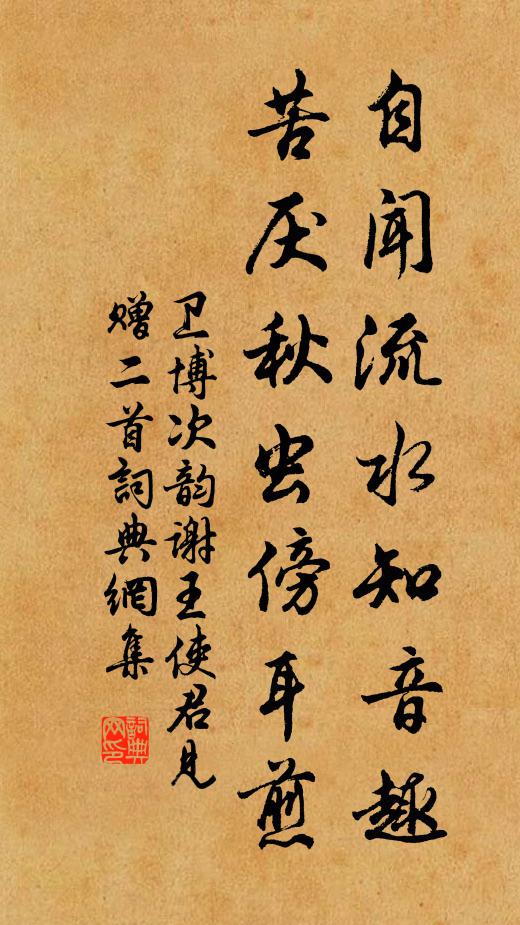 自闻流水知音趣
苦厌秋虫傍耳煎
卫博次韵谢王使君见
赠二首詞典網集
詞典
网印